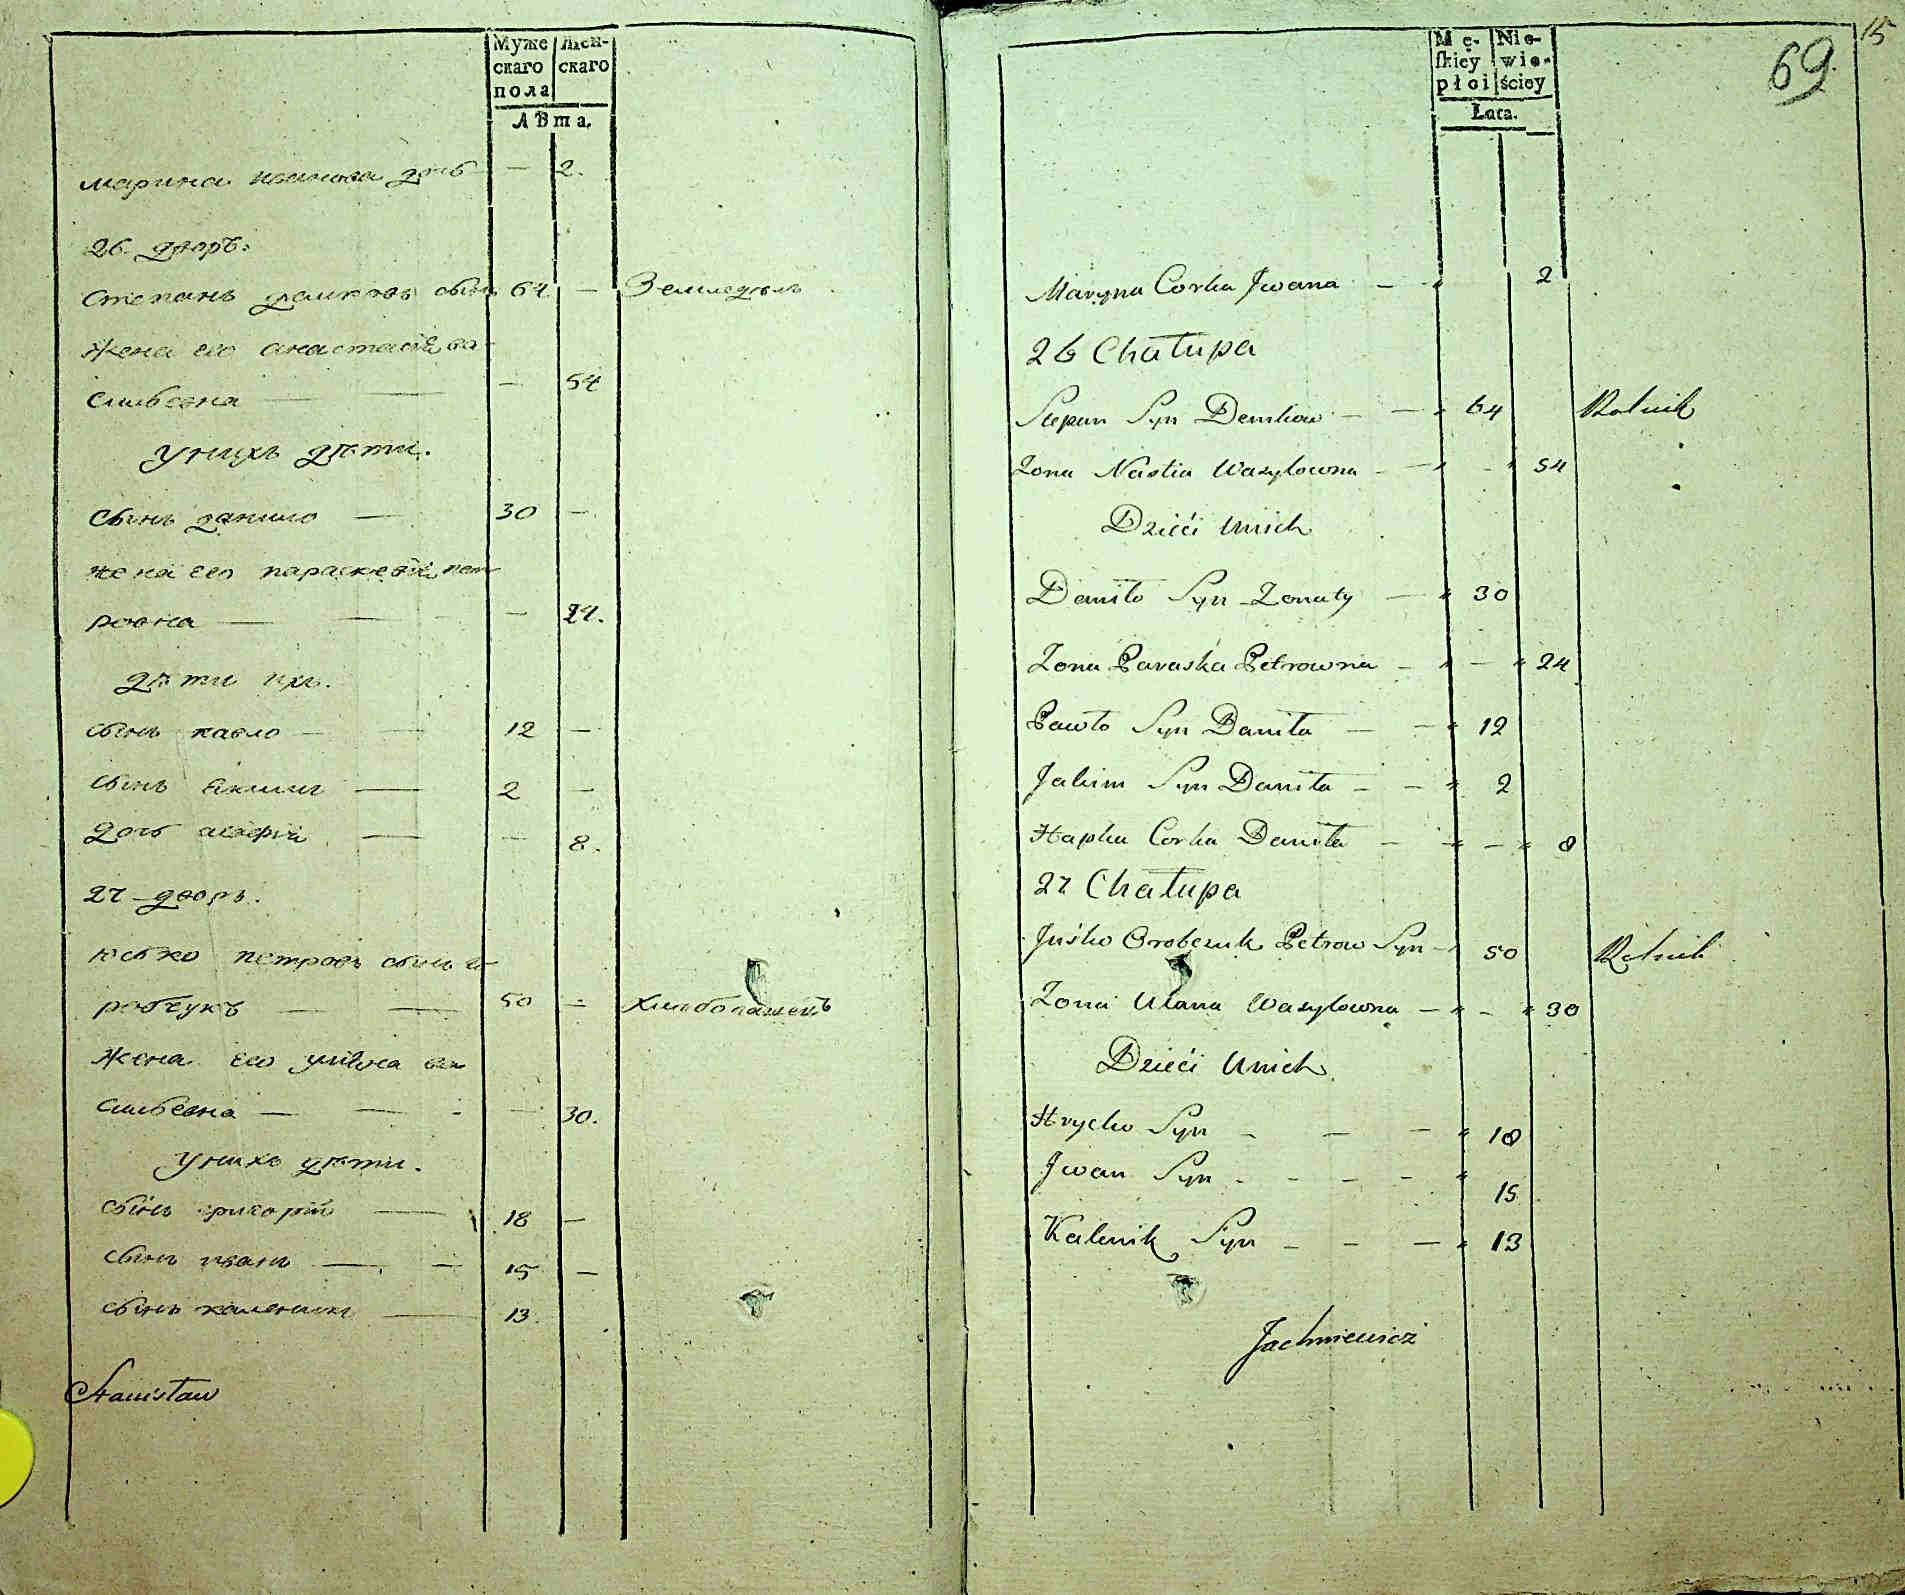 Муже
скаго
пола
Жен-
скаго
Лѣта.
марина иванова дочь — 2.
26 дворъ.
Степанъ демковъ сынъ 64 — Земледѣлъ
Жена его анастасія ва-
сильевна — — — 54
Унихъ дѣти.
Сынъ данило — 30 —
жена его параскевія пет
ровна — — — 24.
дѣти ихъ.
сынъ павло — — 12 —
сынъ якимъ — 2 —
дочь — — 8.
27 дворъ.
юсько петровъ сынъ о-
робчукъ — — 50 — хлѣбопашецъ
Жена его уліяна ва
сильевна — — — — 30.
Унихъ дѣти.
сынъ григорій — 18 —
сынъ иванъ — — 15 —
сынъ каленикъ — 13.
Stanisław
15
69.
Mę-
skiey
płci
Nie-
wie-
ściey
Łata.
Maryna Corka Jwana — " 2
26 Chałupa
Stepan Syn Demkow — — " 64 Rolnik
Zona Nastia Wasylowna — — " - " 54
Dzieći Unich
Daniło Syn Zonaty — " 30
Zona Paraska Petrowna — " — " 24
Pawło Syn Daniła — — " 12
Jakim Syn Daniła — — " 2
Hapka Corka Daniła — " — " 8
27 Chałupa
Juśko Orobczuk Petrow Syn — " 50 Rolnik
Zona Ulana Wasylowna — " - " 30
Dzieći Unich
Hryćko Syn — — — " 18
Jwan Syn - - - - " 15
Kalenik Syn — — — " 13
Jachniewicz